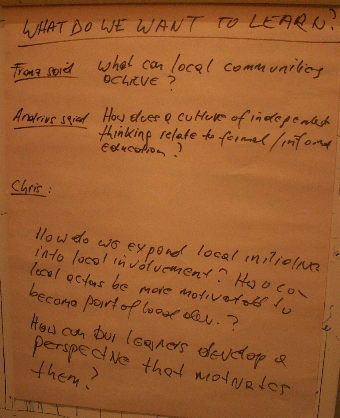 WHAT DO WE WANT TO LEARN?
Franz said What can local communities
achieve?
Andrius said How does a culture of independent
thinking relate to formal/informal
education?
Chris:
How do we expand local initiative
into local involvement? How can
local actors be more motivated to
become part of local dev.?
How can our learners develop a
perspective that motivates
them?